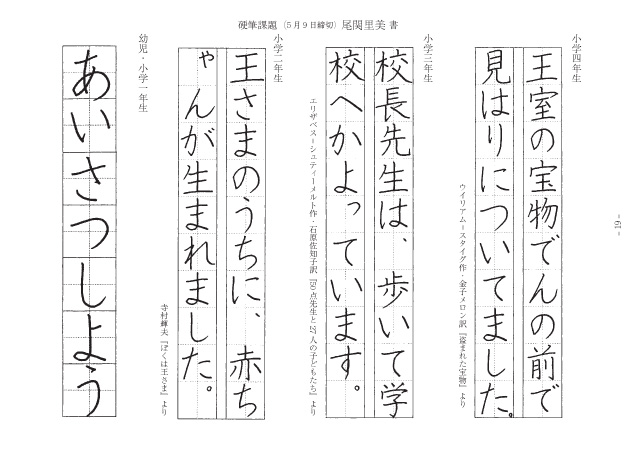 硬筆課題（５月９日締切）尾関里美 書
小学四年生
王室の宝物でんの前で
見はりについてました。
ウイリアム＝スタイグ作・金子メロン訳『盗まれた宝物』より
小学三年生
校長先生は、歩いて学
校へかよっています。
エリザベス＝シュティーメルト作・石原佐知子訳『50点先生と27人の子どもたち』より
小学二年生
王さまのうちに、赤ち
ゃんが生まれました。
寺村輝夫『ぼくは王さま』より
幼児・小学一年生
あいさつしよう
- 19 -